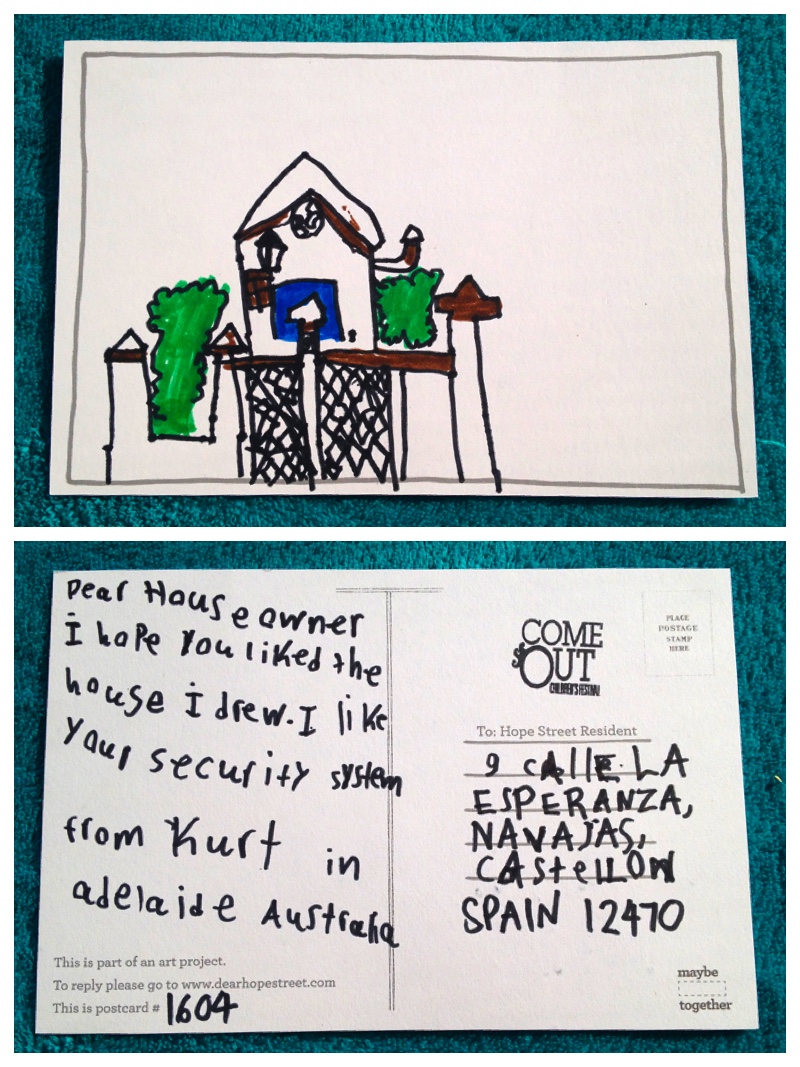 Dear House owner
I hope you liked the
house I drew. I like
your security system
from Kurt in
adelaide Australia
This is part of an art project.
To reply please go to www.dearhopestreet.com
This is postcard # 1604
COME
OUT
CHILDREN'S FESTIVAL
PLACE
POSTAGE
STAMP
HERE
To: Hope Street Resident
9 cAllE. LA
ESPERANZA,
NAVAJAS,
CAsteLLON
SPAIN 12470
maybe
together